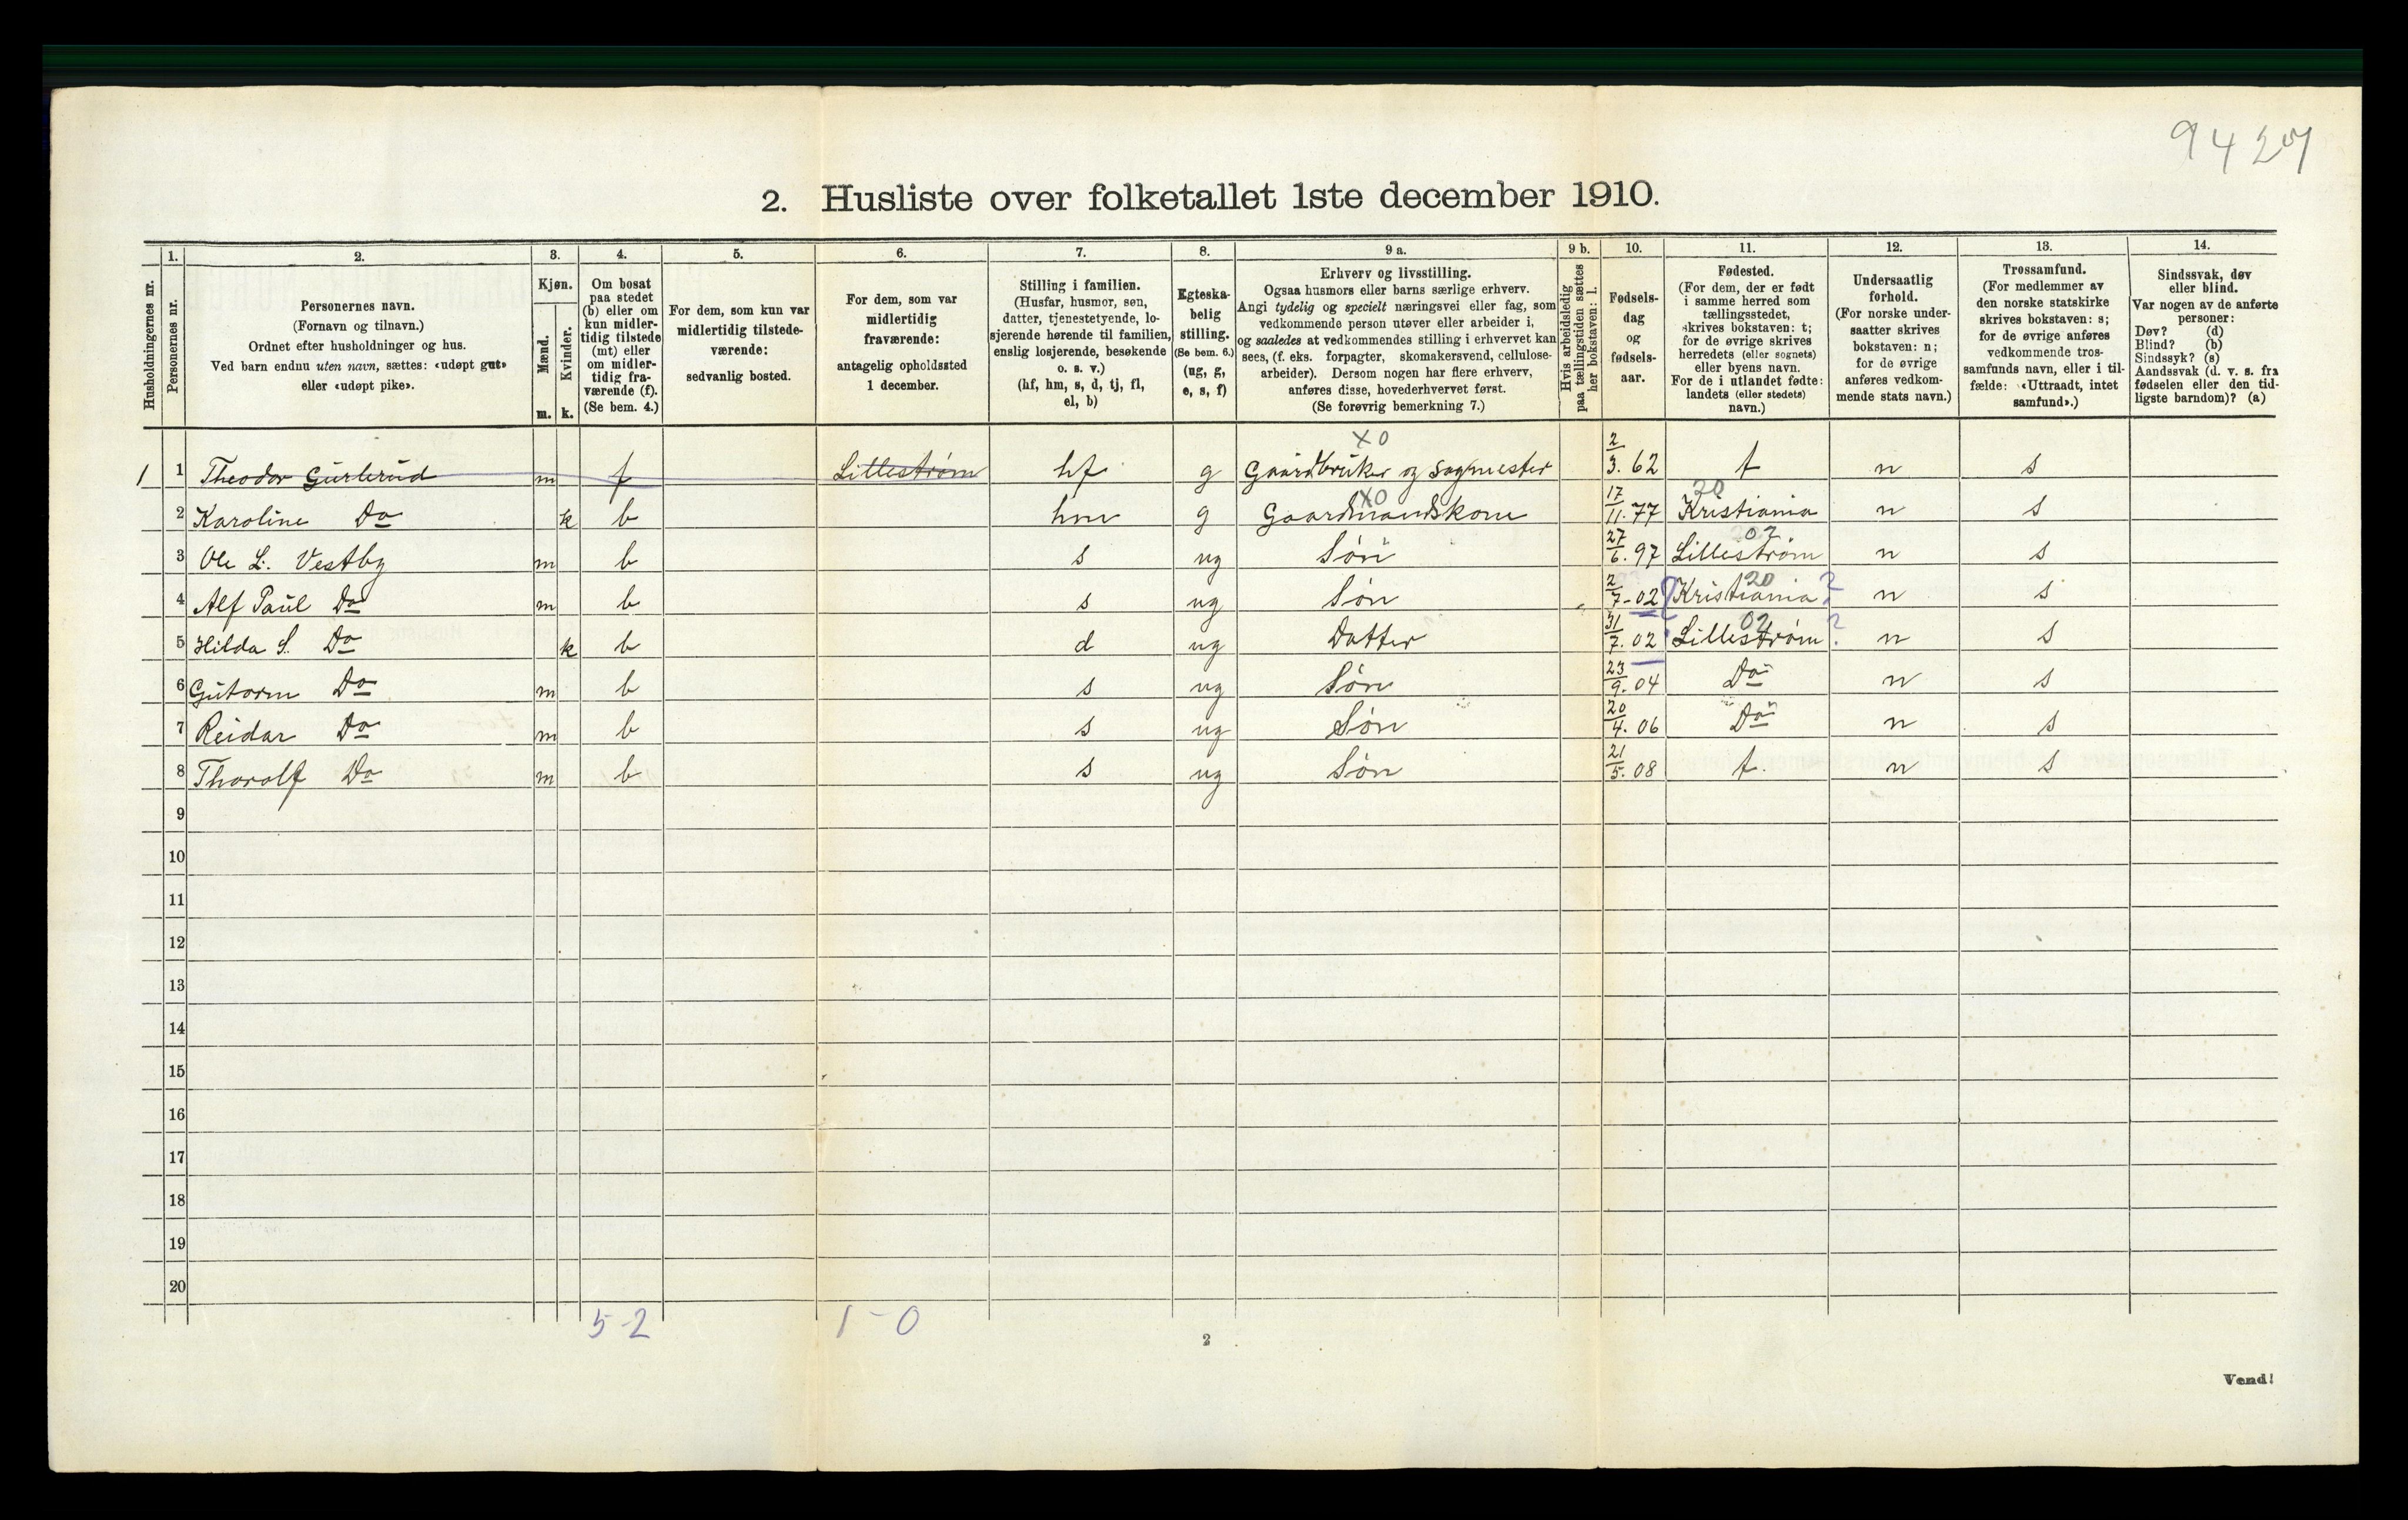 9427
2. Husliste over folketallet 1ste december 1910.
Husholdningernes nr.
1.
Personernes nr.
2.
Personernes navn.
(Fornavn og tilnavn.)
Ordnet efter husholdninger og hus.
Ved barn endnu uten navn, sættes: «udøpt gut»
eller «udøpt pike».
3.
Kjøn.
Mænd.
Kvinder.
m. k.
4.
Om bosat
paa stedet
(b) eller om
kun midler-
tidig tilstede
(mt) eller
om midler-
tidig fra-
værende (f).
(Se bem. 4.)
5.
For dem, som kun var
midlertidig tilstede-
værende:
sedvanlig bosted.
6.
For dem, som var
midlertidig
fraværende:
antagelig opholdssted
1 december.
7.
Stilling i familien.
(Husfar, husmor, søn,
datter, tjenestetyende, lo-
sjerende hørende til familien,
enslig losjerende, besøkende
o. s. v.)
(hf, hm, s, d, tj, fl,
el, b)
8.
Egteska-
belig
stilling.
(Se bem. 6.)
(ug, g,
e, s, f)
9 a.
Erhverv og livsstilling.
Ogsaa husmors eller barns særlige erhverv.
Angi tydelig og specielt næringsvei eller fag, som
vedkommende person utøver eller arbeider i,
og saaledes at vedkommendes stilling i erhvervet kan
sees, (f. eks. forpagter, skomakersvend, cellulose-
arbeider). Dersom nogen har flere erhverv,
anføres disse, hovederhvervet først.
(Se forøvrig bemerkning 7.)
9 b.
Hvis arbeidsledig
paa tællingstiden sættes
her bokstaven: l.
10.
Fødsels-
dag
og
fødsels-
aar.
11.
Fødested.
(For dem, der er født
i samme herred som
tællingsstedet,
skrives bokstaven: t;
for de øvrige skrives
herredets (eller sognets)
eller byens navn.
For de i utlandet fødte:
landets (eller stedets)
navn.)
12.
Undersaatlig
forhold.
(For norske under-
saatter skrives
bokstaven: n;
for de øvrige
anføres vedkom-
mende stats navn.)
13.
Trossamfund.
(For medlemmer av
den norske statskirke
skrives bokstaven: s;
for de øvrige anføres
vedkommende tros-
samfunds navn, eller i til-
fælde: «Uttraadt, intet
samfund».)
14.
Sindssvak, døv
eller blind.
Var nogen av de anførte
personer:
Døv? (d)
Blind? (b)
Sindssyk? (s)
Aandssvak (d. v. s. fra
fødselen eller den tid-
ligste barndom)? (a)
X0
1 1 Theodor m f Lillestrøm hf g Gaardbruker og Sagmester 2/3. 62 t n s
X0 20
2 Karoline Do k b hm g Gaardmandskone 17/11. 77 Kristiania n s
02
3 Ole L. Vestby m b s ug Søn 27/6. 97 Lillestrøm n s
20
4 Alf Paul Do m b s ug Søn 2/7 - 02 ? Kristiania ? n s
02
5 Hilda S. Do k b d ug Datter 31/7. 02 Lillestrøm ? n s
6 Gutorm Do m b s ug Søn 23/9. 04 Do n s
7 Reidar Do m b s ug Søn 20/4. 06 Do n s
8 Thorolf Do m b s ug Søn 21/5. 08 t. n s
9
10
11
12
13
14
15
16
17
18
19
20
5-2 1-0
2
Vend!